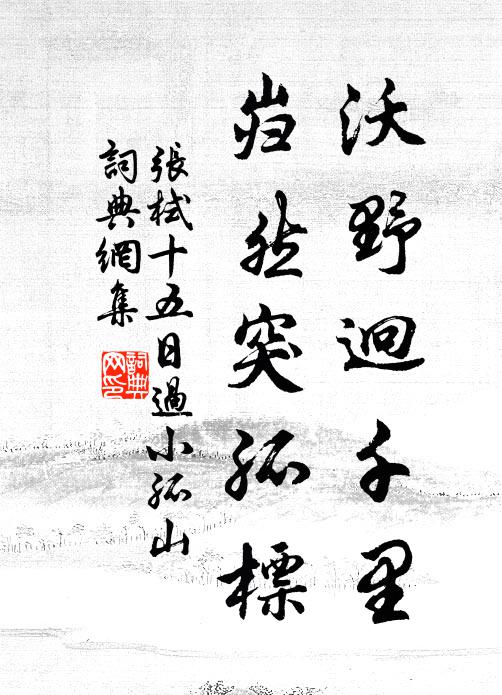 沃野迥千里
岿然突孤標
張栻十五日過小孤山
詞典網集
詞典网印